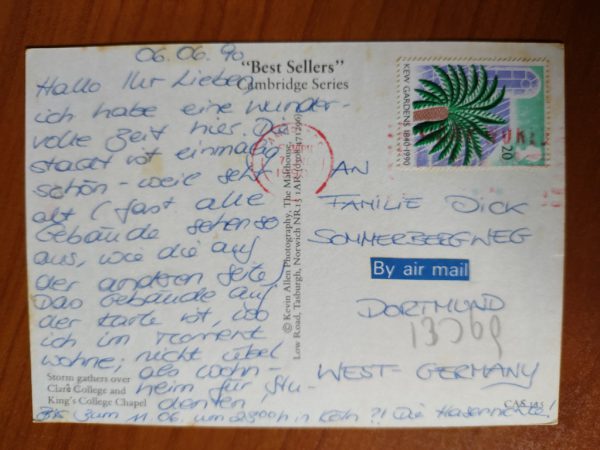 06.06.90
Hallo Ihr Lieben
ich habe eine wunder-
volle Zeit hier. Die
Stadt ist einmalig
schön - weil sehr
alt (fast alle
Gebäude sehen so
aus, wie die auf
der anderen Seite)
Das Gebäude auf
der Karte ist, wo
ich im Moment
wohne; nicht übel
als Wohn-
heim für Stu-
denten,
Bis zum 11.06. um in Köln ?! Die
"Best Sellers"
Cambridge Series
Storm gathers over
Clare College and
King's College Chapel
© Kevin Allen Photography, The Malthouse,
Low Road, Tasburgh, Norwich NR15 1AR
KEW GARDENS 1840-1990
20
AN
FAMILIE DICK
SOMMERBERGWEG
By air mail
DORTMUND
WEST-GERMANY